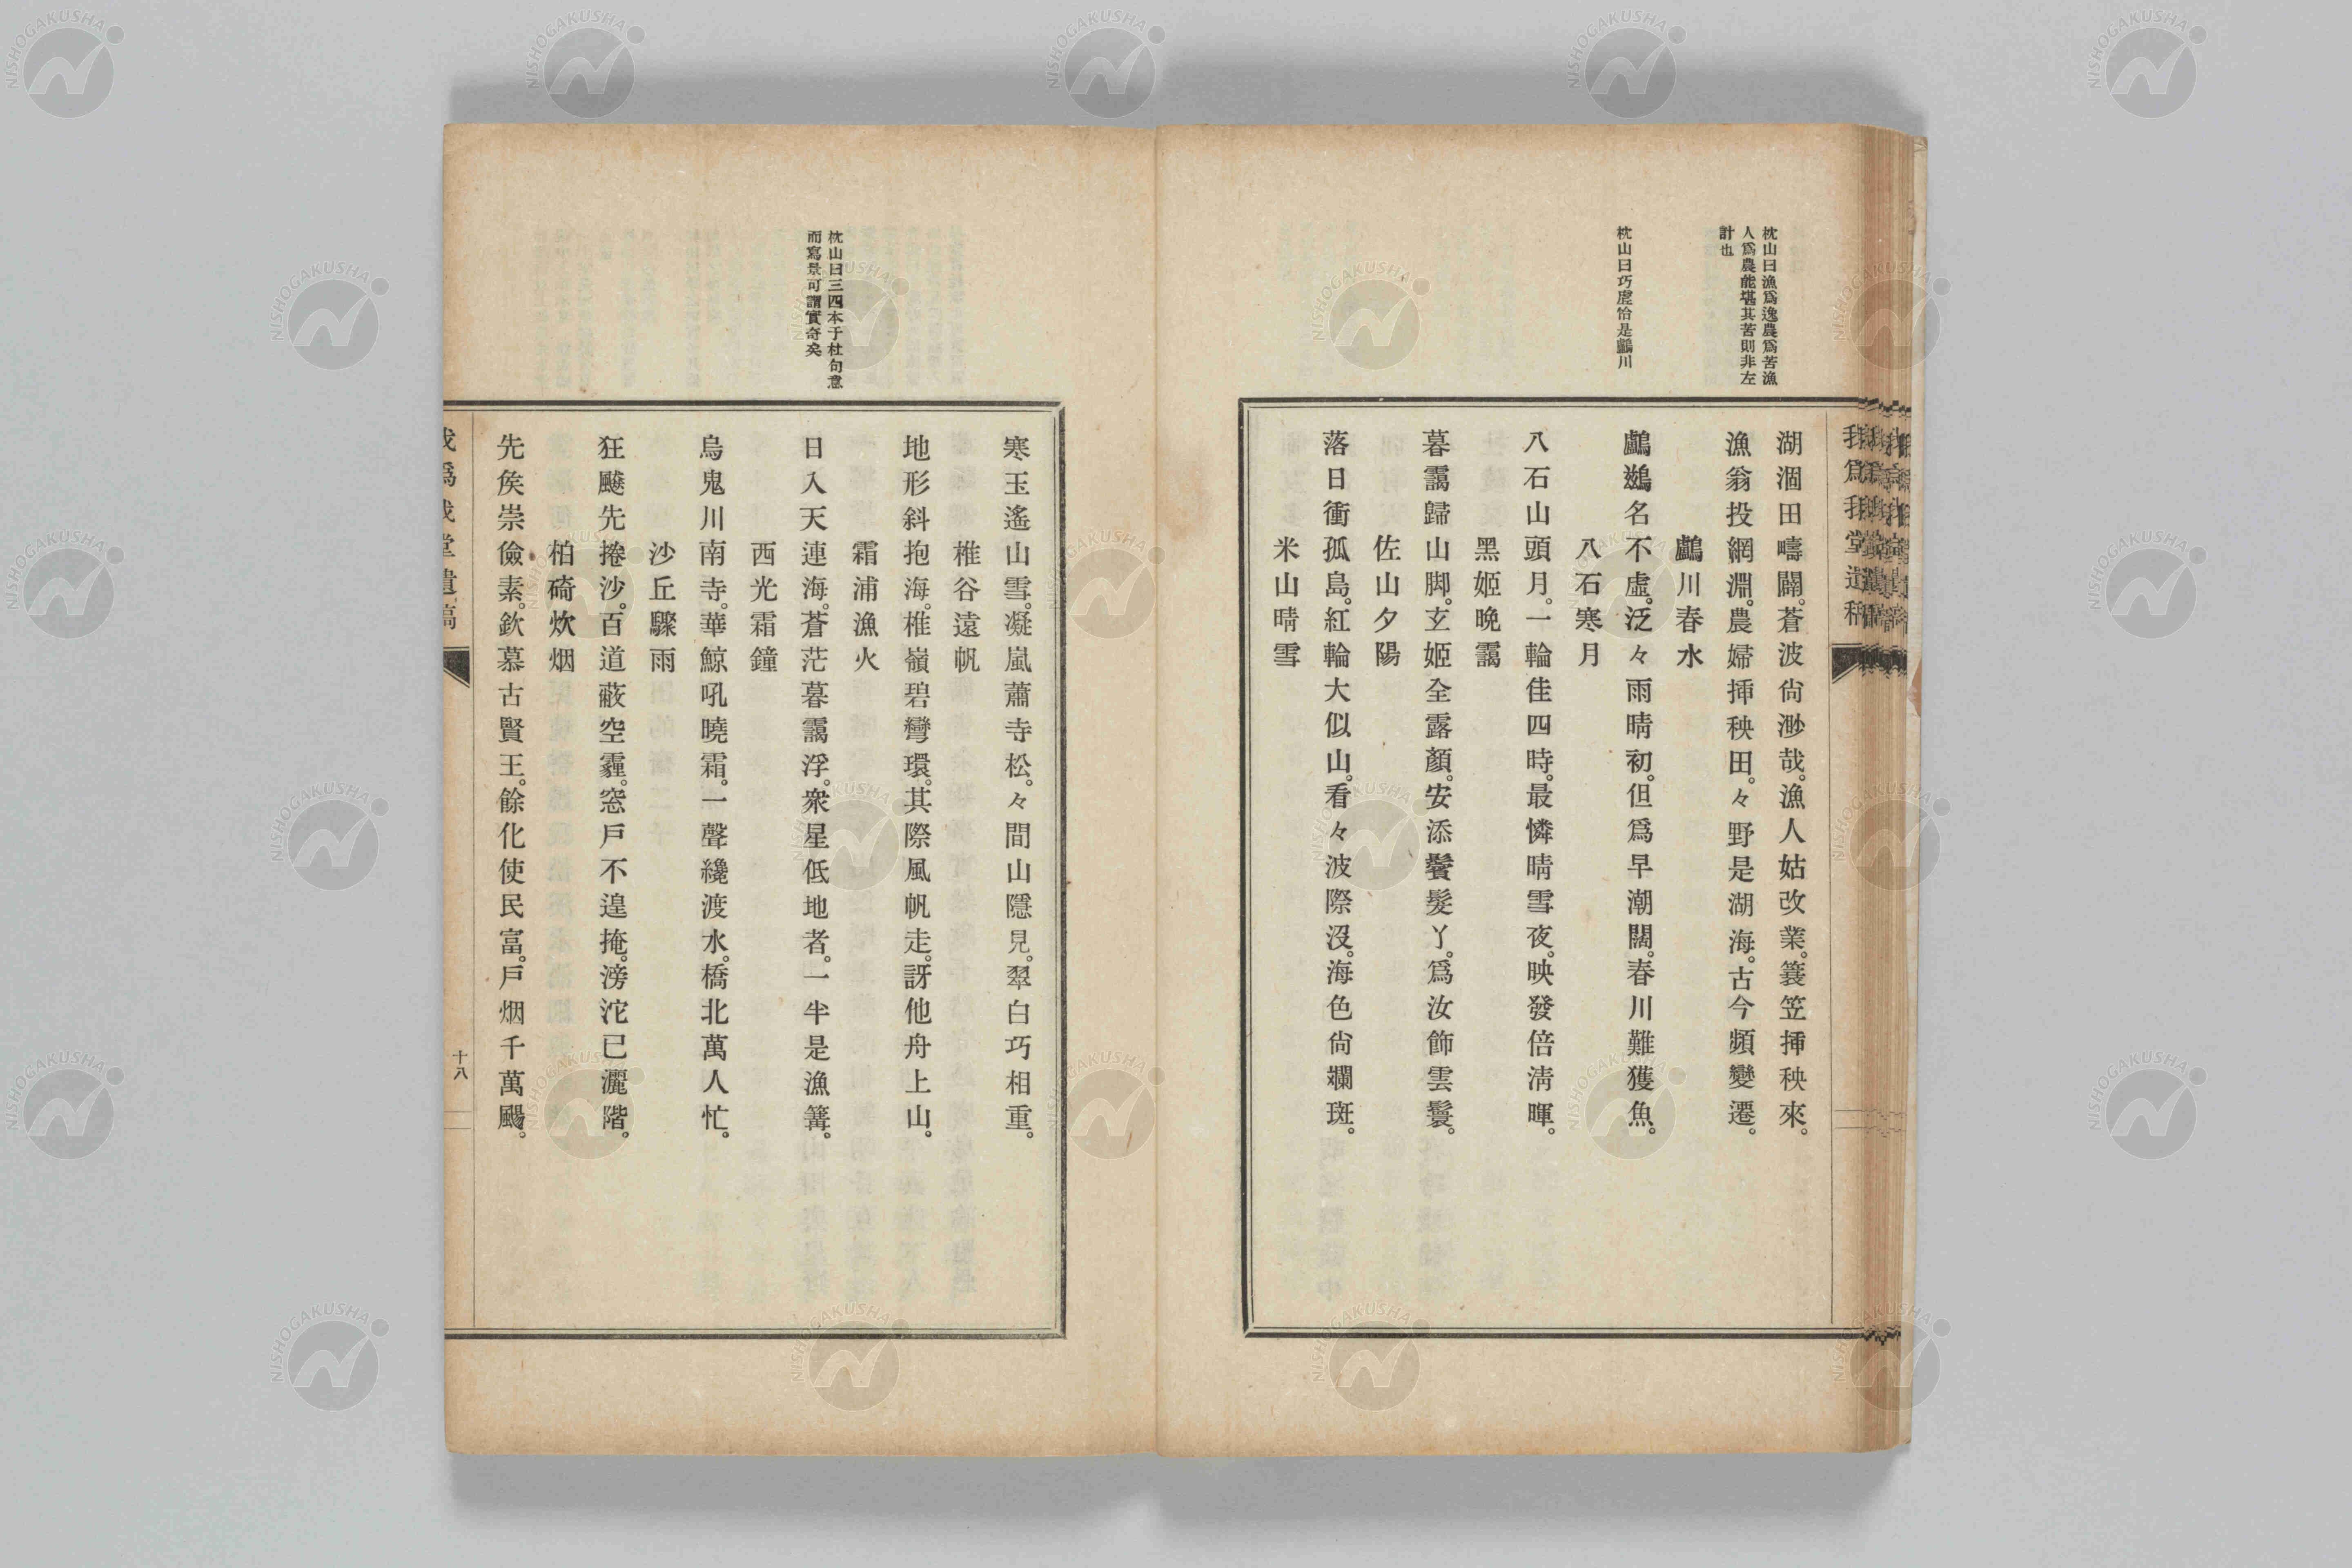 我爲我堂遺稿
枕山曰漁爲逸農爲苦漁
人爲農能堪其苦則非左
計也
枕山曰巧虛恰是鸕川
湖涸田疇闢。蒼波尙渺哉。漁人姑改業。簑笠挿秧來。
漁翁投網淵。農婦挿秧田。々野是湖海。古今頻變遷。
鸕川春水
鸕鷀名不虛。泛々雨晴初。但爲早潮闊。春川難獲魚。
八石寒月
八石山頭月。一輪佳四時。最憐晴雪夜。映發倍淸暉。
黑姬晚靄
暮靄歸山脚。玄姬全露顏。安添鬢髮丫。爲汝飾雲鬟。
佐山夕陽
落日衝孤島。紅輪大似山。看々波際沒。海色尙斕斑。
米山晴雪
枕山曰三四本于杜句意
而寫景可謂實奇矣
寒玉遙山雪。凝嵐蕭寺松。々間山隱見。翠白巧相重。
椎谷遠帆
地形斜抱海。椎嶺碧彎環。其際風帆走。訝他舟上山。
霜浦漁火
日入天連海。蒼茫暮靄浮。衆星低地者。一半是漁篝。
西光霜鐘
烏鬼川南寺。華鯨吼曉霜。一聲纔渡水。橋北萬人忙。
沙丘驟雨
狂飈先捲沙。百道蔽空霾。窓戶不遑掩。滂沱已灑階。
柏碕炊烟
先矦崇儉素。欽慕古賢王。餘化使民富。戶烟千萬颺。
我爲我堂遺稿
十八
NISHOGAKUSHA